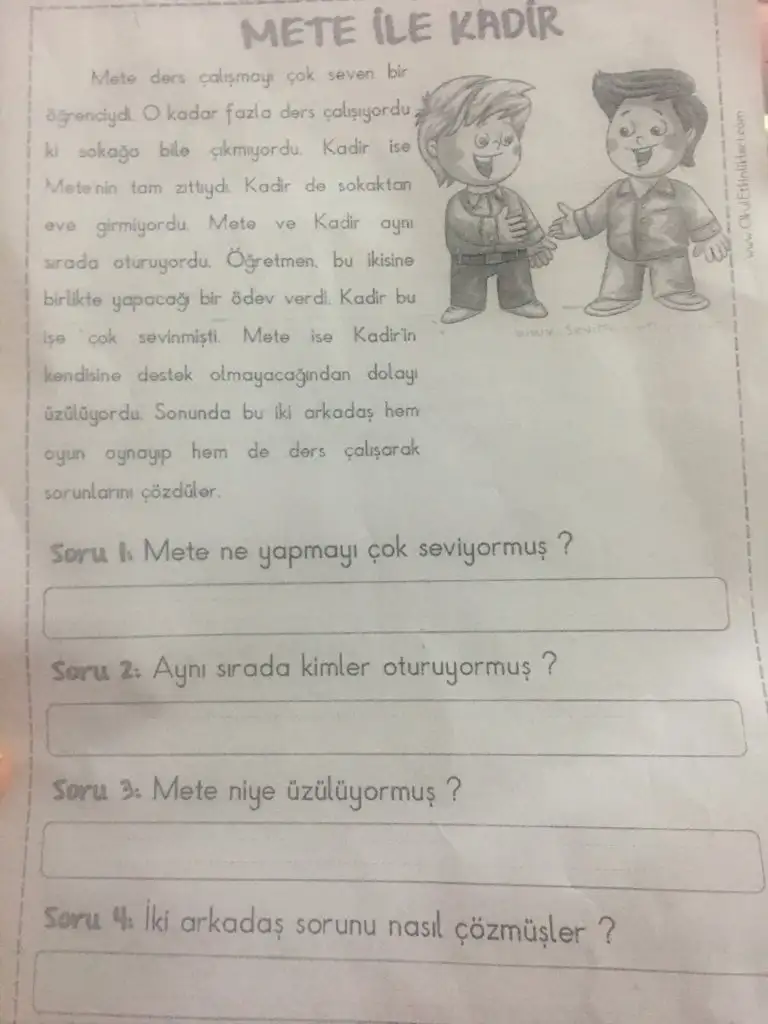 METE İLE KADİR
Mete ders çalışmayı çok seven bir
öğrenciydi. O kadar fazla ders çalışıyordu
ki sokağa bile çıkmıyordu. Kadir ise
Mete'nin tam zıttıydı. Kadir de sokaktan
eve girmiyordu. Mete ve Kadir aynı
sırada oturuyordu. Öğretmen, bu ikisine
birlikte yapacağı bir ödev verdi. Kadir bu
işe çok sevinmişti. Mete ise Kadir'in
kendisine destek olmayacağından dolayı
üzülüyordu. Sonunda bu iki arkadaş hem
oyun oynayıp hem de ders çalışarak
sorunlarını çözdüler.
www.OkulEtkinlikleri.com
Soru 1: Mete ne yapmayı çok seviyormuş ?
Soru 2: Aynı sırada kimler oturuyormuş ?
Soru 3: Mete niye üzülüyormuş ?
Soru 4: İki arkadaş sorunu nasıl çözmüşler ?